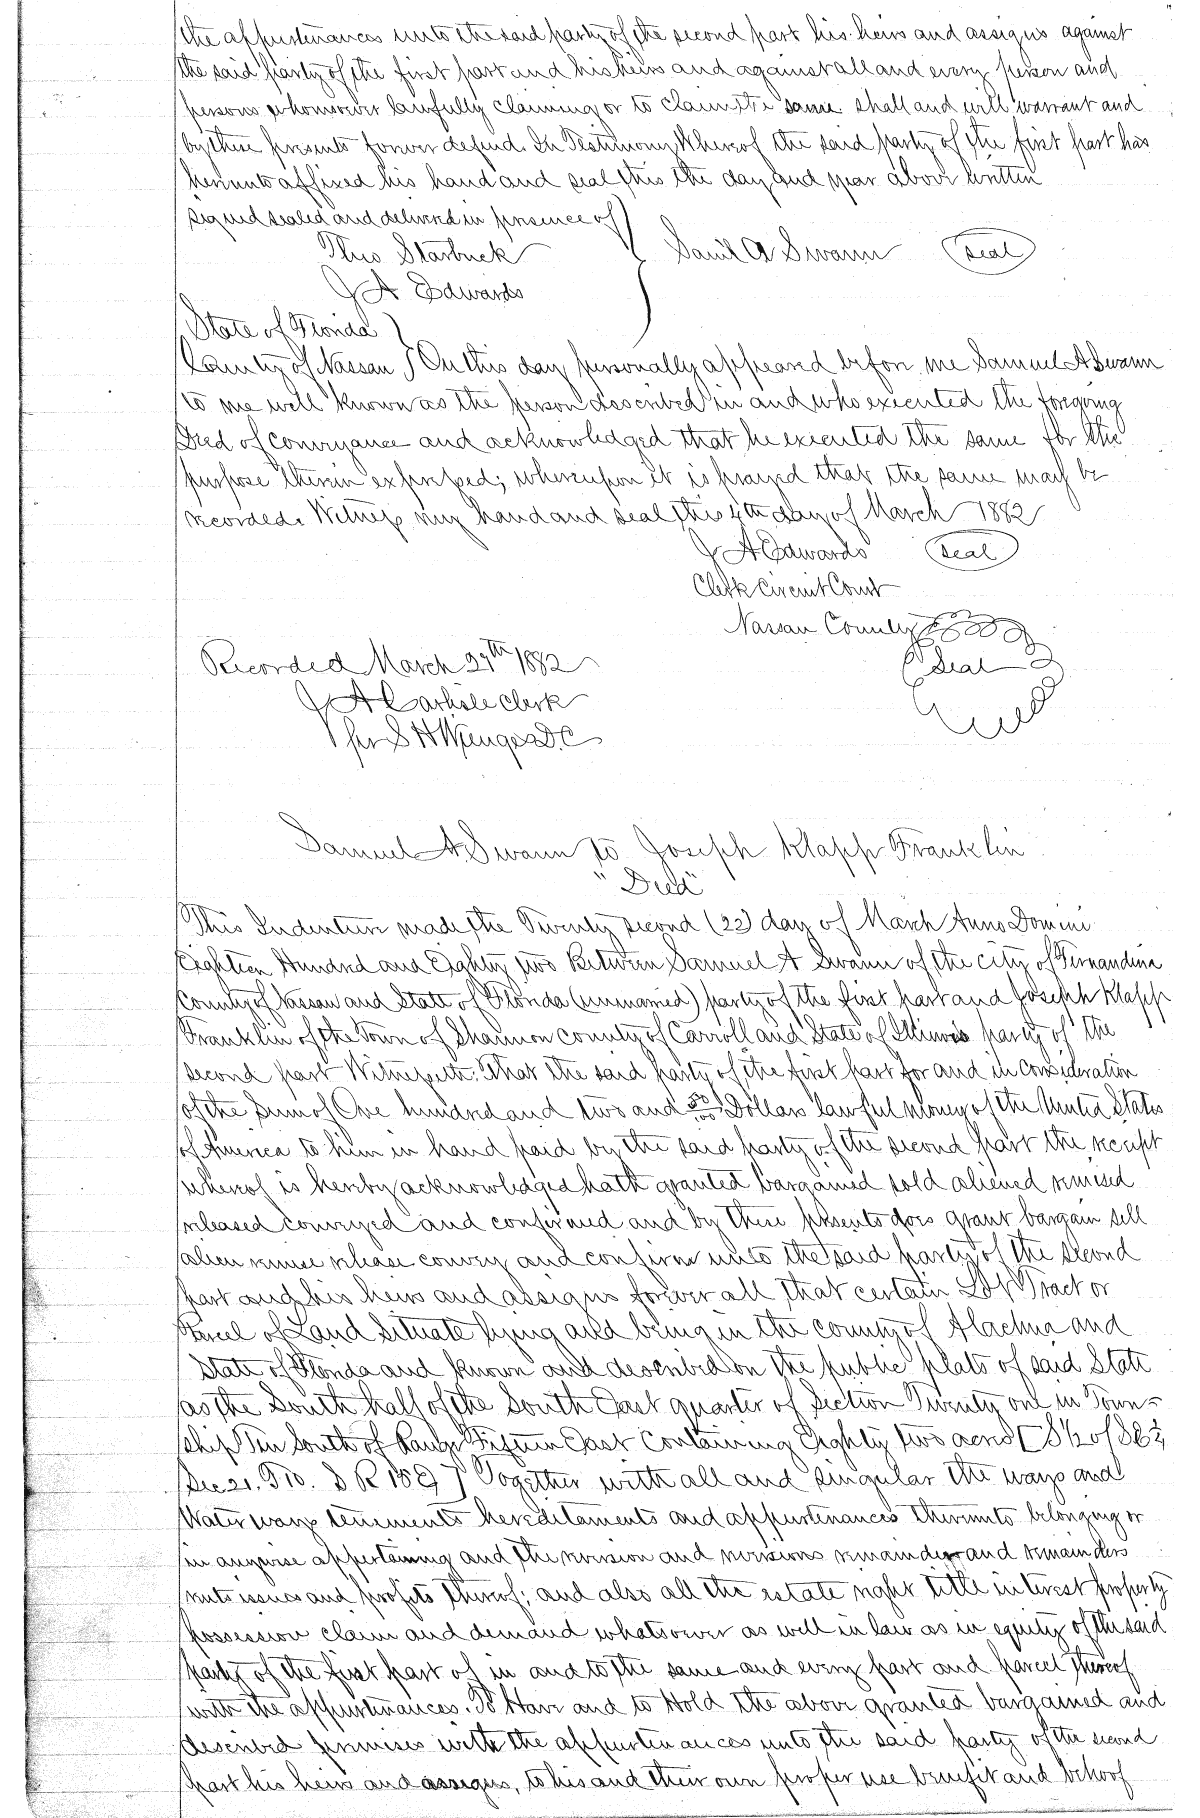 the appurtenances unto the said party of the second part his heirs and assigns against
the said party of the first part and his heirs and against all and every person and
persons whomsoever lawfully claiming or to claim the same shall and will warrant and
by these presents forever defend. In Testimony Whereof the said party of the first part has
hereunto affixed his hand and seal this the day and year above written
signed sealed and delivered in presence of
Theo Starbuck
Saml A Swann
seal
J A Edwards
State of Florida
County of Nassau } On this day personally appeared before me Samuel A Swann
to me well known as the person described in and who executed the foregoing
Deed of conveyance and acknowledged that he executed the same for the
purpose therein expressed; whereupon it is prayed that the same may be
recorded. Witness my hand and seal this 4th day of March 1882
J A Edwards
seal
Clerk Circuit Court
Nassau County
Seal
Recorded March 27th 1882
J A Carlisle Clerk
per S H Wienges D.C
Samuel A. Swann to Joseph Klapp Franklin
"Deed"
This Indenture made the Twenty second (22) day of March Anno Domini
Eighteen Hundred and Eighty two Between Samuel A Swann of the city of Fernandina
County of Nassau and State of Florida (unmarried) party of the first part and Joseph Klapp
Franklin of the Town of Shannon County of Carroll and State of Illinois party of the
second part Witnesseth. That the said party of the first part for and in consideration
of the Sum of One hundred and two and 50/100 Dollars lawful money of the United States
of America to him in hand paid by the said party of the second part the receipt
whereof is hereby acknowledged hath granted bargained sold aliened remised
released conveyed and confirmed and by these presents does grant bargain sell
alien remise release convey and confirm unto the said party of the second
part and his heirs and assigns forever all that certain Lot Tract or
Parcel of Land Situate lying and being in the county of Alachua and
State of Florida and known and described on the public plats of said State
as the South half of the South East quarter of Section Twenty one in Town-
ship Ten South of Range Fifteen East Containing Eighty two acres [S 1/2 of SE 1/4
Sec 21. T10. S R 15 E] Together with all and singular the ways and
Water ways tenements hereditaments and appurtenances thereunto belonging or
in anywise appertaining and the revision and revisions remainder and remainders
rents issues and profits thereof; and also all the estate right title interest property
possession claim and demand whatsoever as well in law as in equity of the said
party of the first part of in and to the same and every part and parcel thereof
with the appurtenances. To Have and to Hold the above granted bargained and
described premises with the appurtenances unto the said party of the second
part his heirs and assigns, to his and their own proper use benefit and behoof